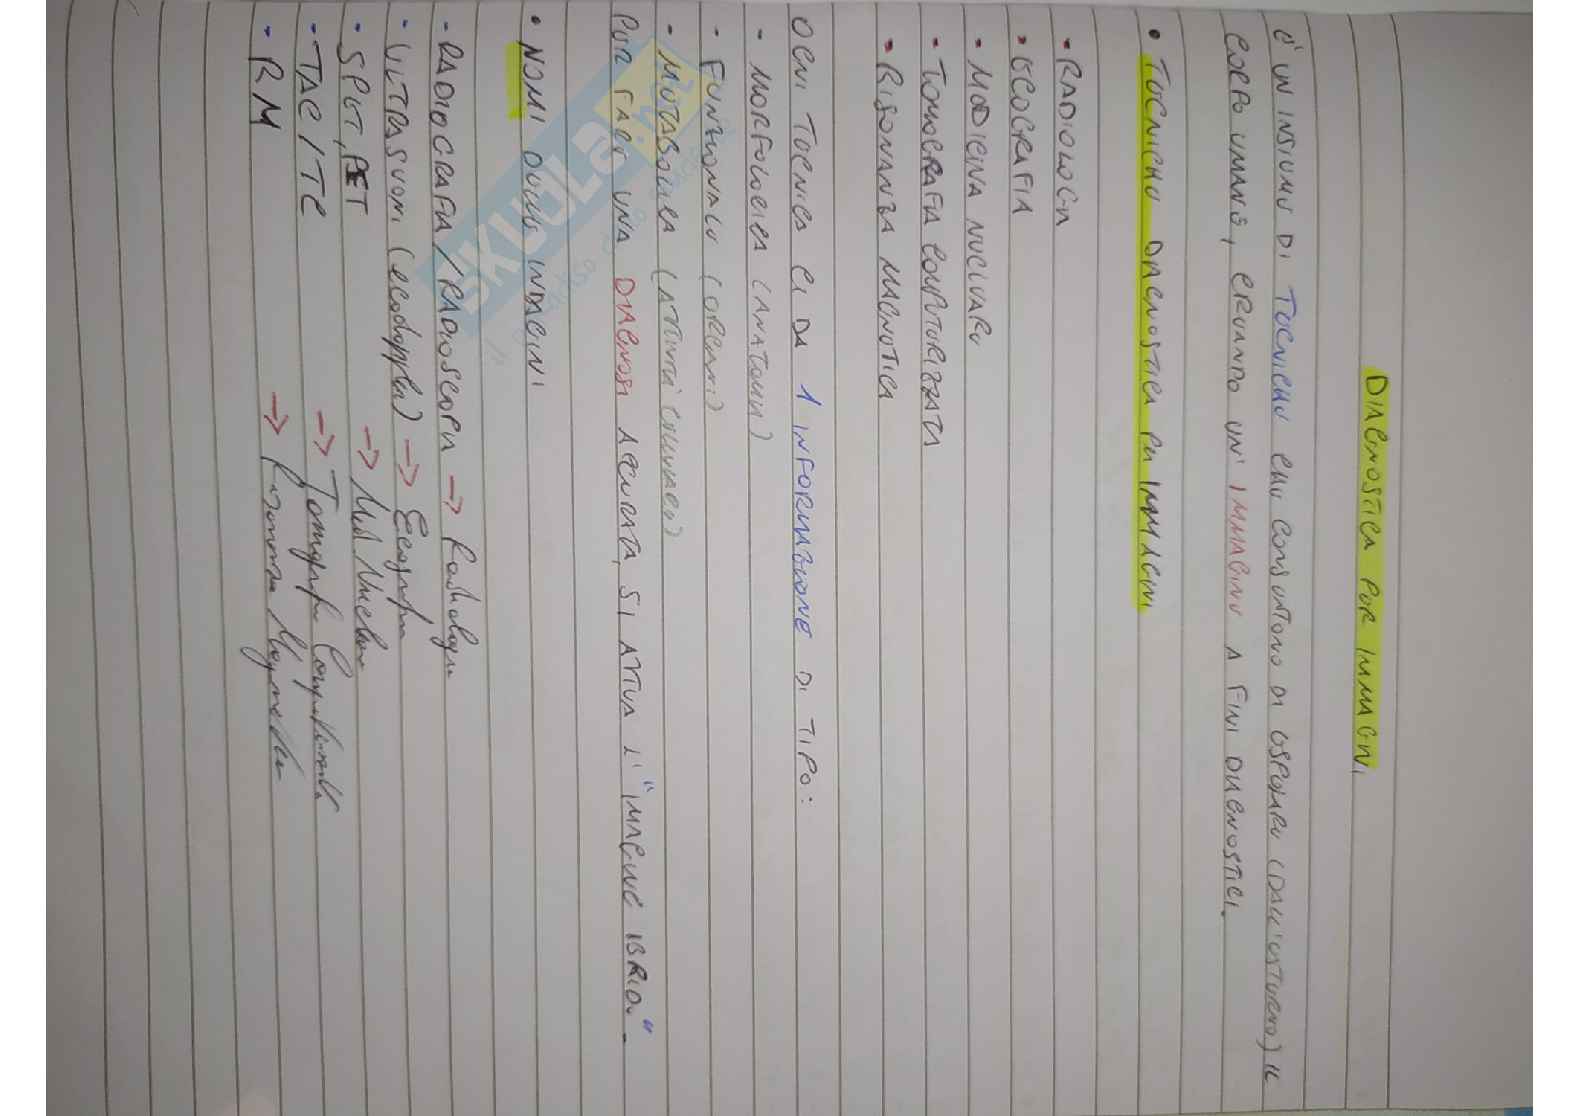 DIAGNOSTICA PER IMMAGINI
È UN INSIEME DI TECNICHE CHE CONSENTONO DI ESPORRE (DALL'ESTERNO) IL
CORPO UMANO, CREANDO UN' IMMAGINE A FINI DIAGNOSTICI.
• TECNICHE DIAGNOSTICA PER IMMAGINI
- RADIOLOGIA
- ECOGRAFIA
- MEDICINA NUCLEARE
- TOMOGRAFIA COMPUTERIZZATA
- RISONANZA MAGNETICA
OGNI TECNICA CI DA 1 INFORMAZIONE DI TIPO:
- MORFOLOGICA (ANATOMIA)
- FUNZIONALE (ORGANI)
- METABOLICA (ATTIVITÀ CELLULARE)
PER FARE UNA DIAGNOSI ACCURATA, SI ATTUA L' "IMAGING IBRIDO"
• NOMI DELLE INDAGINI
- RADIOGRAFIA / RADIOSCOPIA → Radiologia
- ULTRASUONI (ecodoppler) → Ecografia
- SPET, PET → Med. Nucleare
- TAC/TC → Tomografia Computerizzata
- RM → Risonanza Magnetica
SKUOLA.net